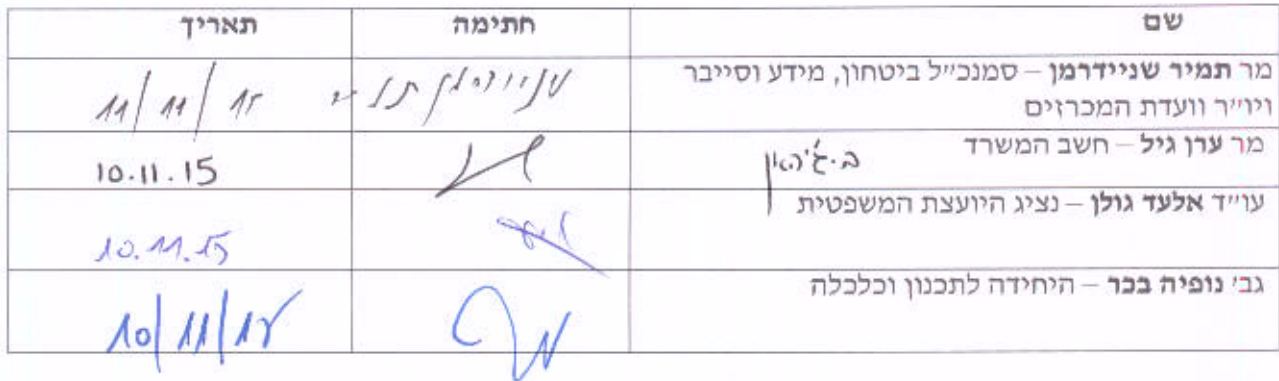 שם חתימה תאריך
מר תמיר שניידרמן – סמנכ״ל ביטחון, מידע וסייבר
ויו״ר וועדת המכרזים
שניידרמן תמיר 11/11/15
מר ערן גיל – חשב המשרד
10.11.15
עו״ד אלעד גולן – נציג היועצת המשפטית
10.11.15
גב׳ נופיה בכר – היחידה לתכנון וכלכלה
10/11/15